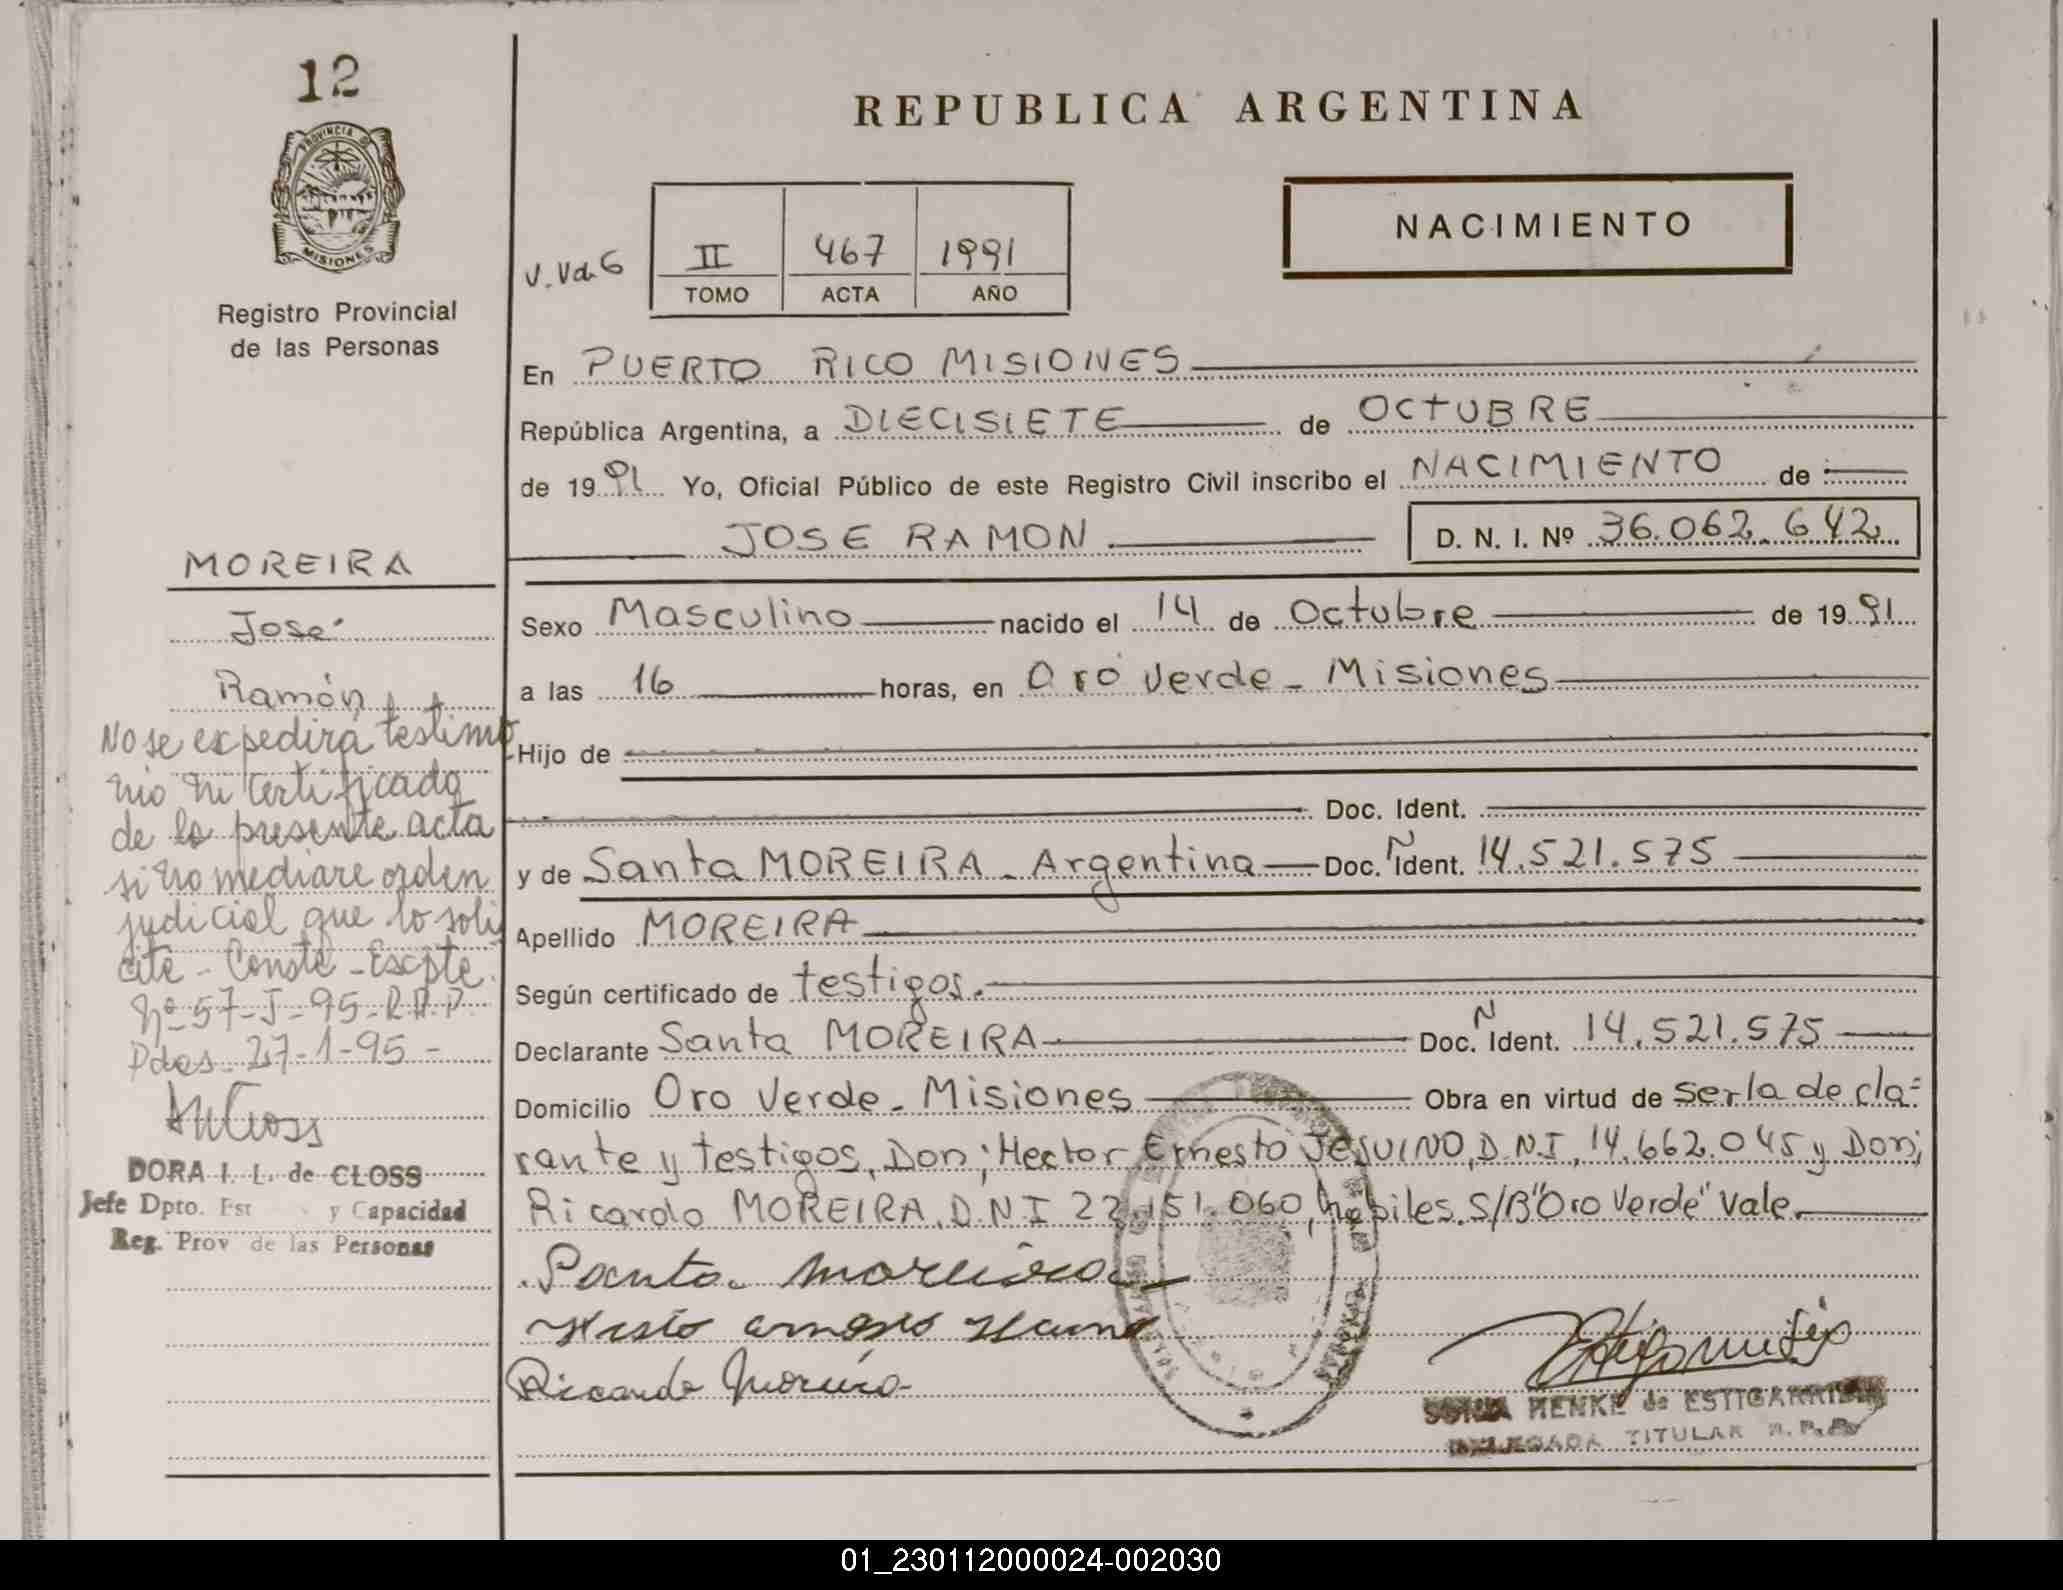 12
PROVINCIA DE
MISIONES
Registro Provincial
de las Personas
MOREIRA
José
Ramón
No se expedirá testimo
nio ni certificado
de la presente acta
si no mediare orden
judicial que lo soli
cite - Conste - Escpte.
Nº 57-J-95-R.P.P.
Pdas. 27-1-95 -
DORA I. L. de CLOSS
Jefe Dpto. Est y Capacidad
Reg. Prov de las Personas
REPUBLICA ARGENTINA
NACIMIENTO
V.Vd.G
II 467 1991
TOMO ACTA AÑO
En PUERTO RICO MISIONES
República Argentina, a DIECISIETE de OCTUBRE
de 1991 Yo, Oficial Público de este Registro Civil inscribo el NACIMIENTO de
JOSE RAMON D. N. I. Nº 36.062.642
Sexo Masculino nacido el 14 de Octubre de 1991
a las 16 horas, en Oro Verde - Misiones
Hijo de
Doc. Ident.
y de Santa MOREIRA - Argentina Doc. N Ident. 14.521.575
Apellido MOREIRA
Según certificado de testigos.
Declarante Santa MOREIRA Doc. N Ident. 14.521.575
Domicilio Oro Verde - Misiones Obra en virtud de ser la decla=
rante y testigos, Don; Hector Ernesto JESUINO, D.N.I, 14.662.045 y Don;
Ricardo MOREIRA, D.N.I 22.151.060, habiles. S/B "Oro Verde" Vale.
Santa Moreira
Ricardo Moreira
SONIA HENKE de ESTIGARRIBIA
DELEGADA TITULAR R.P.P.
01_230112000024-002030